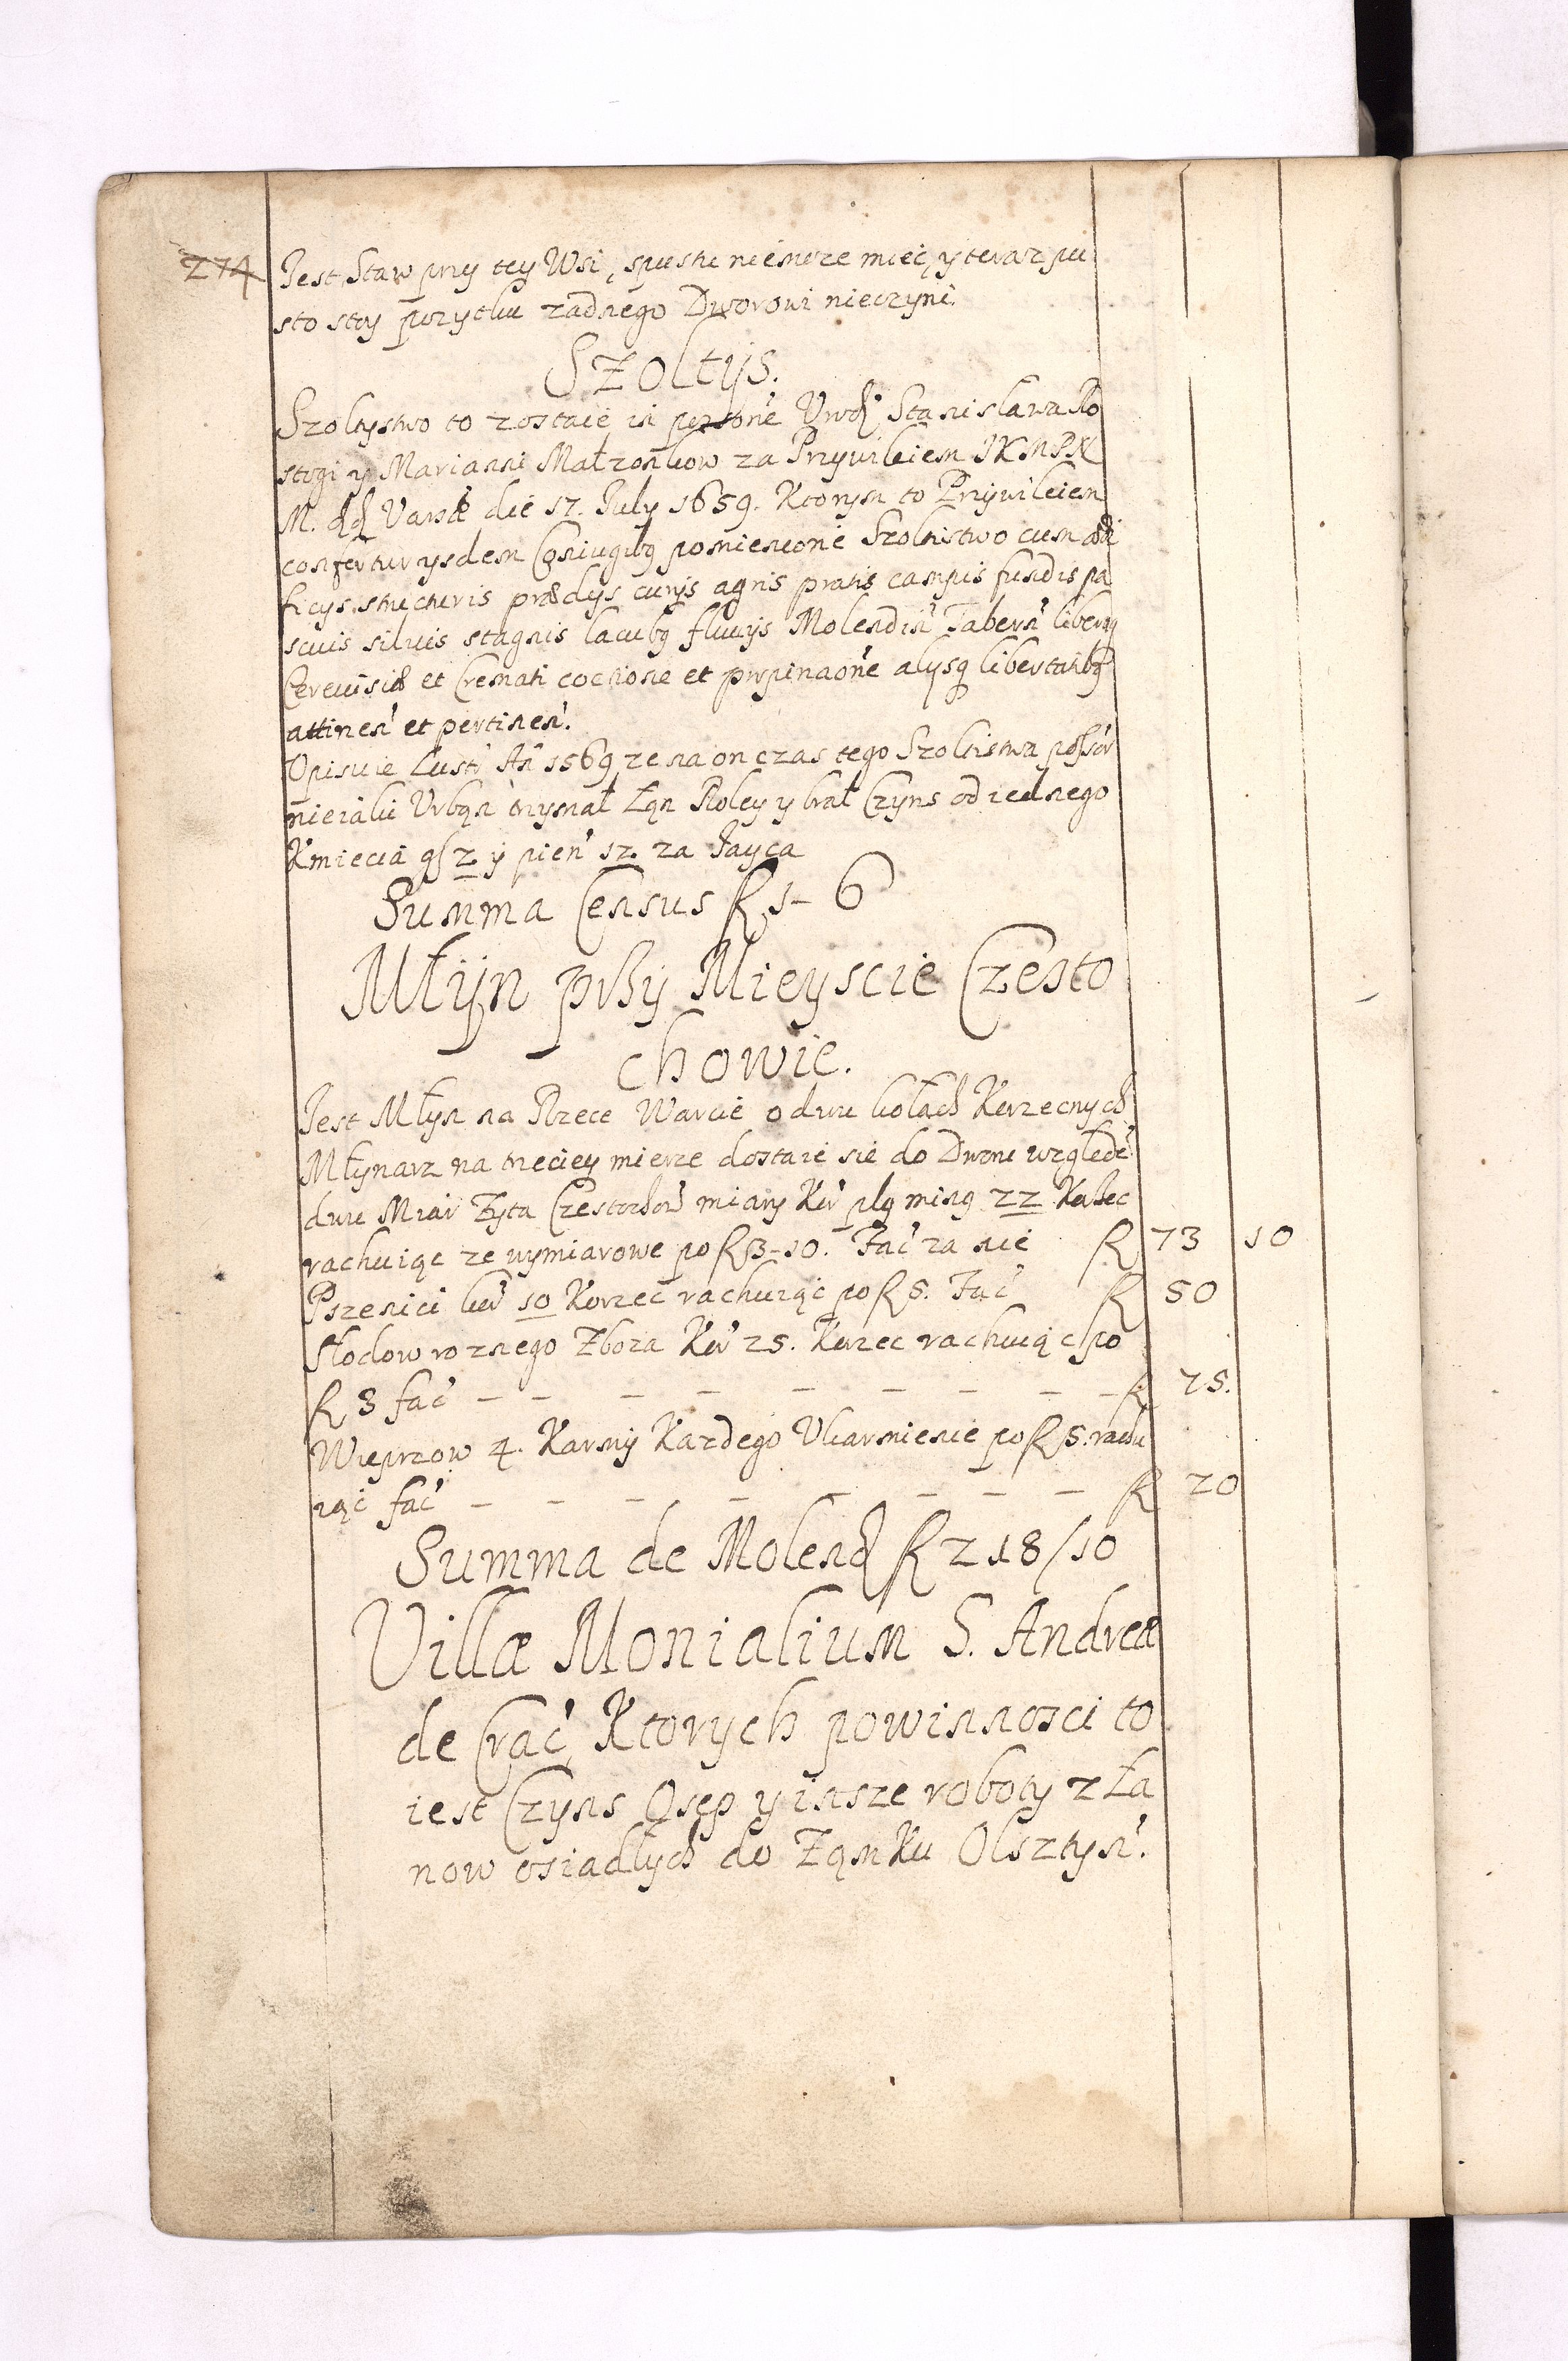 274
Jest Staw przy tey Wsi, spustu niemoze miec, y teraz pu
sto stoy pozytku zadnego Dworowi nieczyni.
Szoltijs.
Szoltystwo to zostaie in persone Urodz Stanislawa Ro
stogi y Marianni Małzonkow za Przywileiem JKMPN
M. dd Varsæ die 17. July 1659. Ktorym to Przywileiem
confertur ysdem Coniugibq pomienione Szoltistwo cum ædi
ficys, structuris prædys curijs agris pratis campis fundis pa
scuis siluis stagnis lacubq fluuijs Molendin Tabern libera
Cereuisiæ et Cremati coctione et propinaone alysq libertatibq
attinen et pertinen.
Opisuie Lustr An 1569 ze na on czas tego Szoltistwa possor
nieiaki Urban trzymał Łan Roley y brał Czyns od iednego
Kmiecia gs z y pien 12. za Jayca
Summa Census R 1 - 6
Młijn przy Mieyscie Czesto
chowie.
Jest Młyn na Rzece Warcie o dwu kołach Korzecnych
Młynarz na trzeciey mierze dostaie sie do Dworu względe
dwu Miar Zyta Czestochow miary Kor plq minq 22 Korzec
rachuiąc ze wymiarowe po R 3-10. Fac za nie R 73 10
Pszenici kor 10 Korzec rachuiąc po R 5. Fac R 50
Słodow roznego Zboza Kor 25. Korzec rachuiąc po
R 3 fac - - - - - - - - - R 75.
Wieprzow 4. Karmij Kazdego Ukarmienie po R 5. rachu
iąc fac - - - - - - - - R 20
Summa de Molend R 218/10
Villæ Monialium S. Andreæ
de Crac, Ktorych powinnosci to
iest Czyns Osep y insze roboty z Ła
now osiadłych do Zamku Olsztyn.